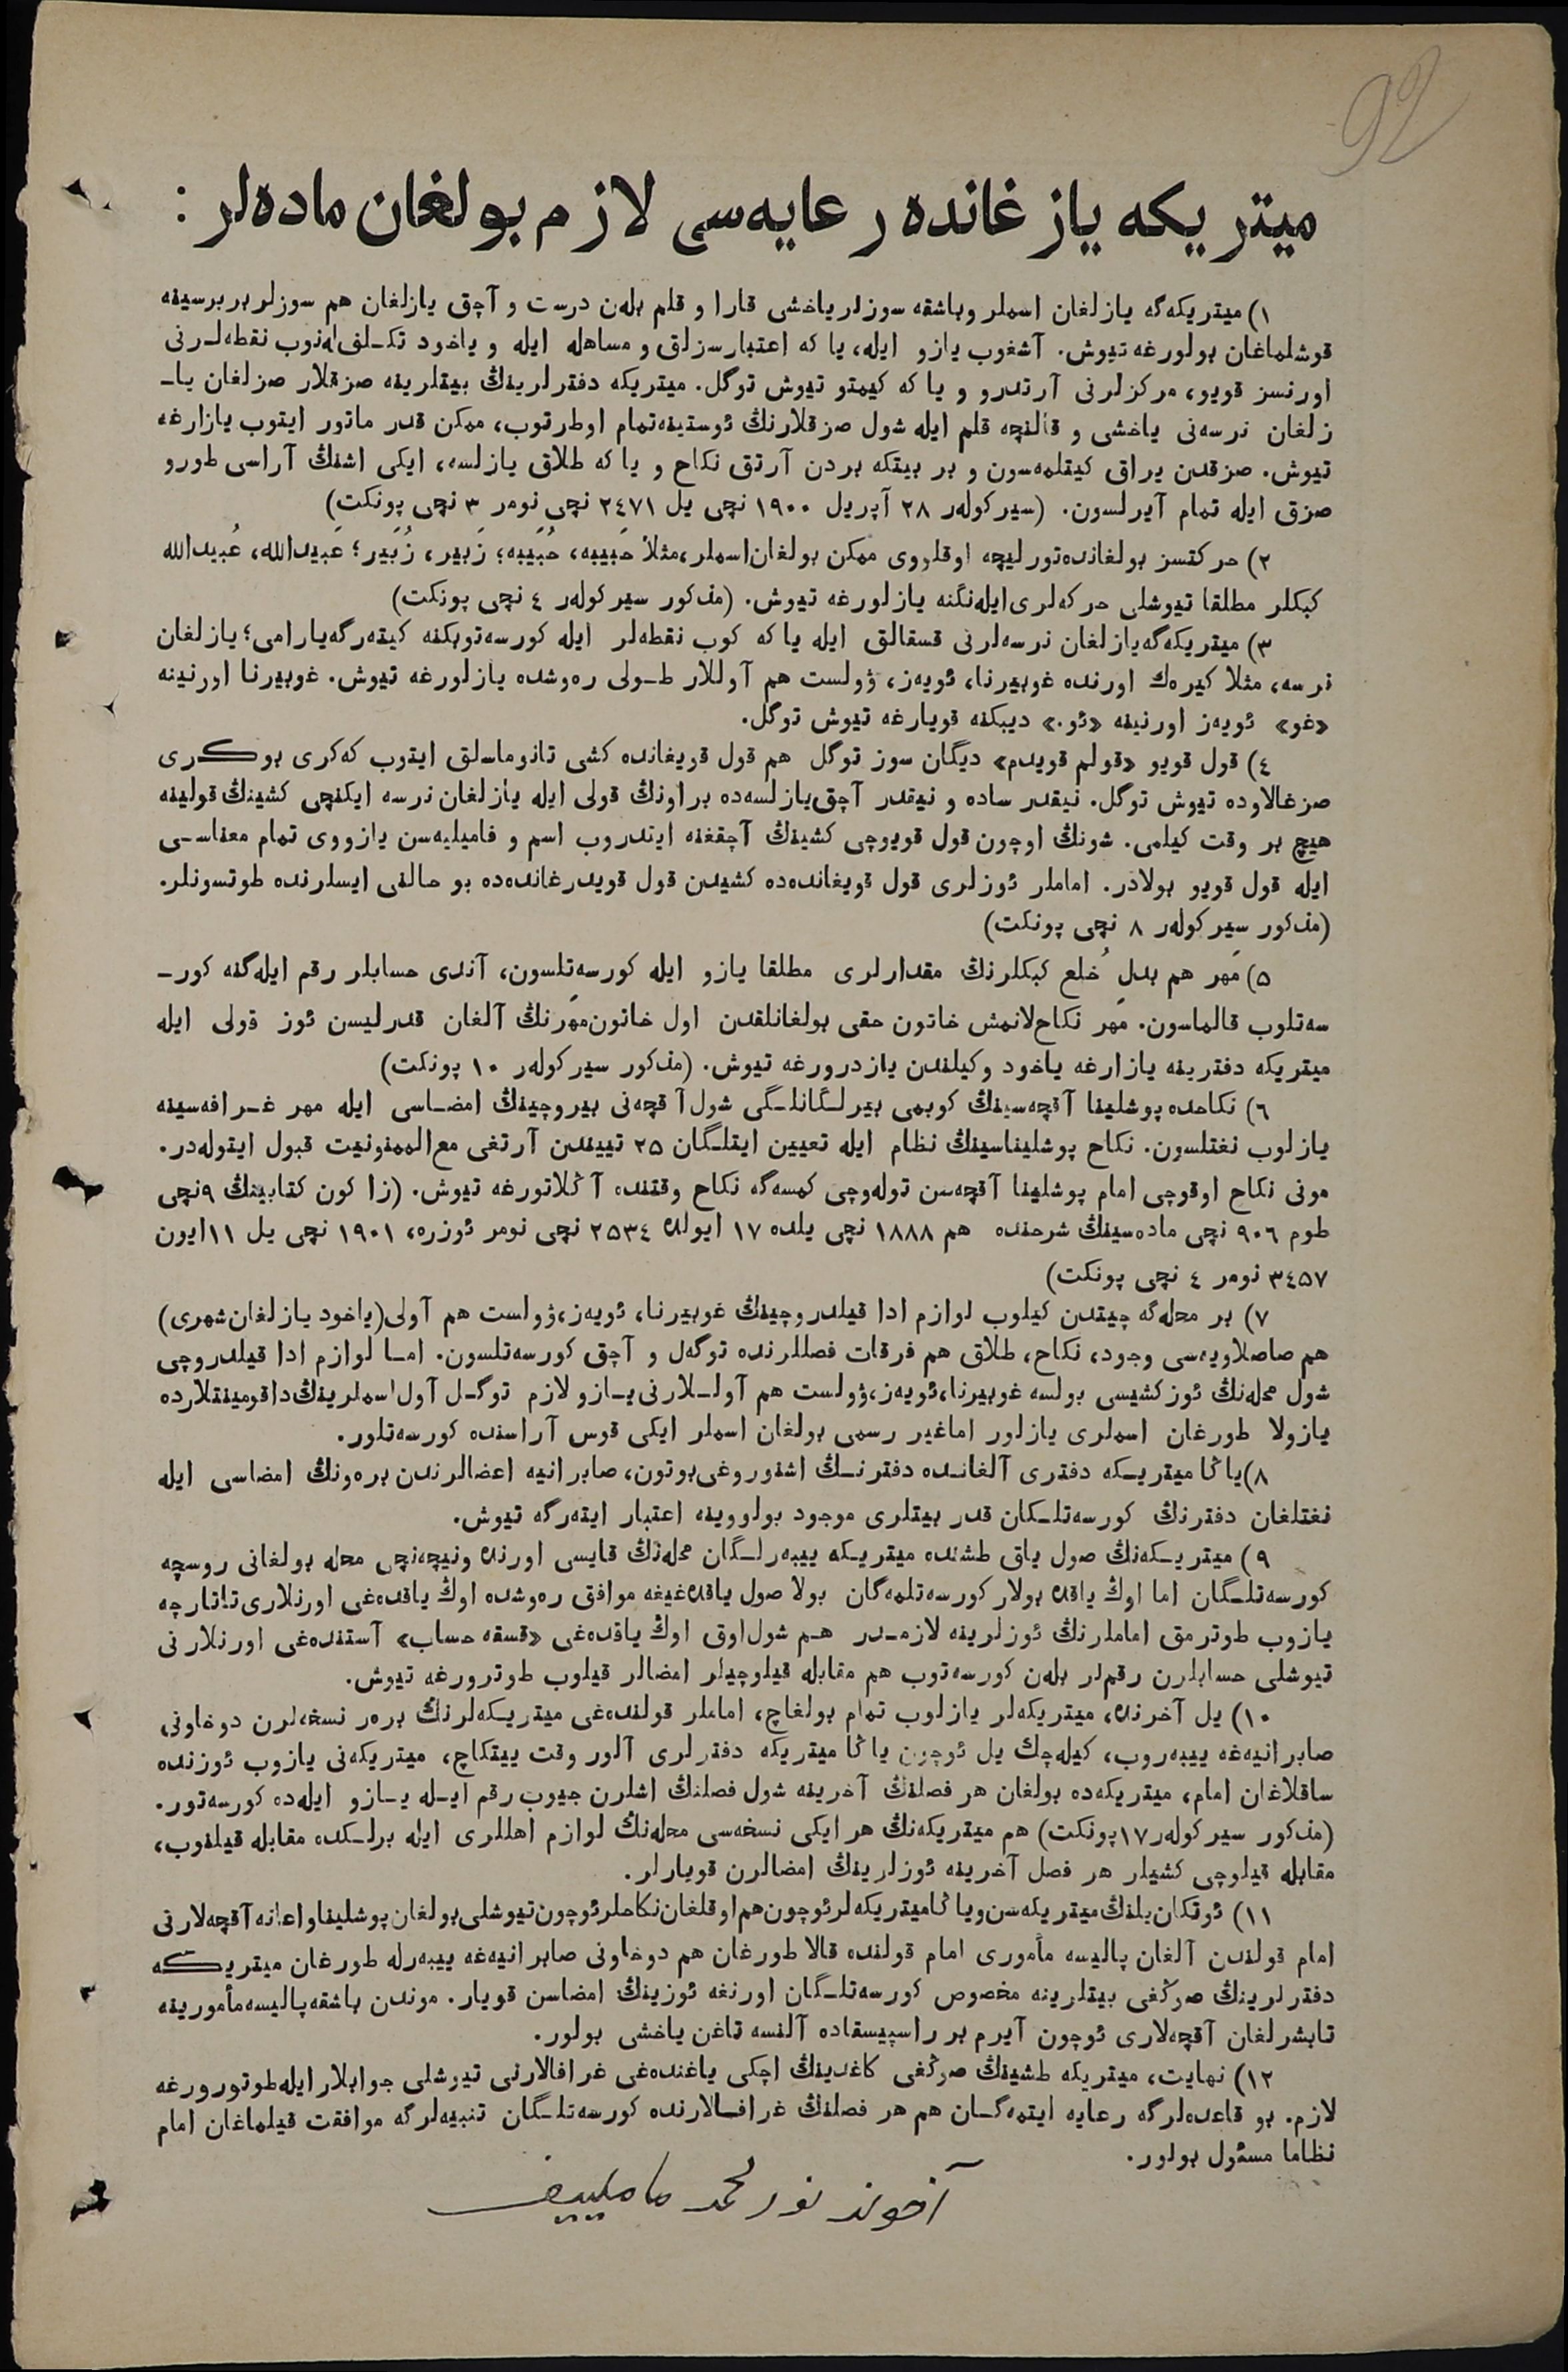 92
میتریکه یازغانده رعایه‌سی لازم بولغان ماده‌لر :
۱) میتریکه‌گه یازلغان اسملر وباشقه سوزلر یاخشی قارا و قلم بله‌ن درست و آچق یازلغان هم سوزلر بربرسینه
قوشلماغان بولورغه تیوش. آشغوب یازو ایله، یا که اعتبارسزلق و مساهله ایله و یاخود تکـلف‌له‌نوب نقطه‌لـرنی
اورنسز قویو، مرکزلرنی آرتدرو و یا که کیمتو تیوش توگل. میتریکه دفترلرینڭ بیتلرینه صزقلار صزلغان یا‌ـ
زلغان نرسه‌نی یاخشی و قالنچه قلم ایله شول صزقلارنڭ ئوستینه‌تمام اوطرتوب، ممکن قدر ماتور ایتوب یازارغه
تیوش. صزقدن یراق کیتلمه‌سون و بر بیتکه بردن آرتق نکاح و یا که طلاق یازلسه، ایکی اشنڭ آراسی طورو
صزق ایله تمام آیرلسون. (سیرکوله‌ر ۲۸ آپریل ۱۹۰۰ نچی یل ۲٤۷۱ نچی نومر ۳ نچی پونکت)
۲) حرکتسز بولغانده‌تورلیچه اوقلووی ممکن بولغان‌اسملر،مثلاً حَبیبه، حُبَیبه؛ زَبیر، زُبَیر؛ عَبیدالله، عُبیدالله
کبکلر مطلقا تیوشلی حرکه‌لری‌ایله‌نگنه یازلورغه تیوش. (مذکور سیرکوله‌ر ٤ نچی پونکت)
۳) میتریکه‌گه‌یازلغان نرسه‌لرنی قسقالق ایله یا که کوب نقطه‌لر ایله کورسه‌توبکنه کیته‌رگه‌یارامی؛ یازلغان
نرسه، مثلا کیره‌ك اورنده غوبیرنا، ئویه‌ز، ۋولست هم آوللار طـولی ره‌وشده یازلورغه تیوش. غوبیرنا اورنینه
«غو» ئویه‌ز اورنینه «ئو.» دیبکنه قویارغه تیوش توگل.
٤) قول قویو «قولم قویدم» دیگان سوز توگل هم قول قویغانده کشی تانوماسلق ایتوب که‌کری بوکـری
صزغالاوده تیوش توگل. نیقدر ساده و نیقدر آچق‌یازلسه‌ده براونڭ قولی ایله یازلغان نرسه ایکنچی کشینڭ قولینه
هیچ بر وقت کیلمی. شونڭ اوچون قول قویوچی کشینڭ آچقغنه ایتدروب اسم و فامیلیه‌سن یازووی تمام معناسـی
ایله قول قویو بولادر. اماملر ئوزلری قول قویغانده‌ده کشیدن قول قویدرغانده‌ده بو حالنی ایسلرنده طوتسونلر.
(مذکور سیرکوله‌ر ۸ نچی پونکت)
۵) مَهر هم بدلِ خُلع کبکلرنڭ مقدارلری مطلقا یازو ایله کورسه‌تلسون، آندی حسابلر رقم ایله‌گنه کور‌ـ
سه‌تلوب قالماسون. مَهر نکاح‌لانمش خاتون حقی بولغانلقدن اول خاتون‌مَهرنڭ آلغان قدرلیسن ئوز قولی ایله
میتریکه دفترینه یازارغه یاخود وکیلندن یازدرورغه تیوش. (مذکور سیرکوله‌ر ۱۰ پونکت)
٦) نکاحده پوشلینا آقچه‌سینڭ کوبمی بیرلـگانلـگی شول‌آقچه‌نی بیروچینڭ امضـاسی ایله مهر غـرافه‌سینه
یازلوب نغتلسون. نکاح پوشلیناسینڭ نظام ایله تعیین ایتلـگان ۲۵ تییندن آرتغی مع‌الممنونیت قبول ایتوله‌در.
مونی نکاح اوقوچی امام پوشلینا آقچه‌سن توله‌وچی کمسه‌گه نکاح وقتنده آڭلاتورغه تیوش. (زاکون کتابینڭ ۹نچی
طوم ۹۰٦ نچی ماده‌سینڭ شرحنده هم ۱۸۸۸ نچی یلده ۱۷ ایولده ۲۵۳٤ نچی نومر ئوزره، ۱۹۰۱ نچی یل ۱۱ایون
۳٤۵۷ نومر ٤ نچی پونکت)
۷) بر محله‌گه چیتدن کیلوب لوازم ادا قیلدروچینڭ غوبیرنا، ئویه‌ز،ۋولست هم آولی(یاخود یازلغان‌شهری)
هم صاصلاویه‌سی وجود، نکاح، طلاق هم فرقات فصللرنده توگه‌ل و آچق کورسه‌تلسون. امـا لوازم ادا قیلدروچی
شول محله‌نڭ ئوزکشیسی بولسه غوبیرنا،ئویه‌ز،ۋولست هم آولـلارنی یـازو لازم توگـل آول‌اسملرینڭ‌داقومینتلارده
یازولا طورغان اسملری یازلور اماغیر رسمی بولغان اسملر ایکی قوس آراسنده کورسه‌تلور.
۸)یاڭا میتریـکه دفتری آلغانـده دفترنـڭ اشنوروغی‌بوتون، صابرانیه اعضالرندن بره‌ونڭ امضاسی ایله
نغتلغان دفترنڭ کورسه‌تلـکان قدر بیتلری موجود بولووینه اعتبار ایته‌رگه تیوش.
۹) میتریـکه‌نڭ صول یاق طشنده میتریـکه ییبه‌رلـگان محله‌نڭ قایسی اورنده ونیچه‌نچی محله بولغانی روسچه
کورسه‌تلـگان اما اوڭ یاقده بولار کورسه‌تلمه‌گان بولا صول یاقده‌غیغه موافق ره‌وشده اوڭ یاقده‌غی اورنلاری‌تاتارچه
یازوب طوترمق اماملرنڭ ئوزلرینه لازمـدر هـم شول‌اوق اوڭ یاقده‌غی «قسقه حساب» آستنده‌غی اورنلارنی
تیوشلی حسابلرن رقم‌لر بله‌ن کورسه‌توب هم مقابله قیلوچیلر امضالر قیلوب طوترورغه تیوش.
۱۰) یل آخرنده، میتریکه‌لر یازلوب تمام بولغاچ، اماملر قولنده‌غی میتریـکه‌لرنڭ بره‌ر نسخه‌لرن دوخاونی
صابرانیه‌غه ییبه‌روب، کیله‌چك یل ئوچون یاڭا میتریکه دفترلری آلور وقت ییتکاچ، میتریکه‌نی یازوب ئوزنده
ساقلاغان امام، میتریکه‌ده بولغان هر فصلنڭ آخرینه شول فصلنڭ اشلرن جیوب رقم ایـله یـازو ایله‌ده کورسه‌تور.
(مذکور سیرکوله‌ر۱۷پونکت) هم میتریکه‌نڭ هر ایکی نسخه‌سی محله‌نڭ لوازم اهللری ایله برلـکده مقابله قیلنوب،
مقابله قیلوچی کشیلر هر فصل آخرینه ئوزلرینڭ امضالرن قویارلر.
۱۱) ئوتکان‌یلنڭ‌میتریکه‌سن‌ویاڭامیتریکه‌لرئوچون‌هم‌اوقلغان‌نکاحلرئوچون‌تیوشلی‌بولغان‌پوشلیناواعانه‌آقچه‌لارنی
امام قولندن آلغان پالیسه مأموری امام قولنده قالا طورغان هم دوخاونی صابرانیه‌غه ییبه‌رله طورغان میتریـکه
دفترلرینڭ صوڭغی بیتلرینه مخصوص کورسه‌تلـگان اورنغه ئوزینڭ امضاسن قویار. موندن باشقه‌پالیسه‌مأمورینه
تابشرلغان آقچه‌لاری ئوچون آیرم بر راسپیسقاده آلنسه تاغن یاخشی بولور.
۱۲) نهایت، میتریکه طشینڭ صوڭغی کاغدینڭ اچکی یاغنده‌غی غرافالارنی تیوشلی جوابلارایله‌طوتورورغه
لازم. بو قاعده‌لرگه رعایه ایتمه‌گـان هم هر فصلنڭ غرافـالارنده کورسه‌تلـگان تنبیه‌لرگه موافقت قیلماغان امام
نظاما مسئول بولور.
آخوند نورمحمد ماملییف